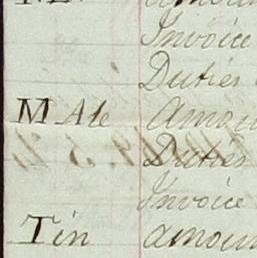 Invoice
Duties
M Ale Amou
Duties
Invoice
Tin amoun